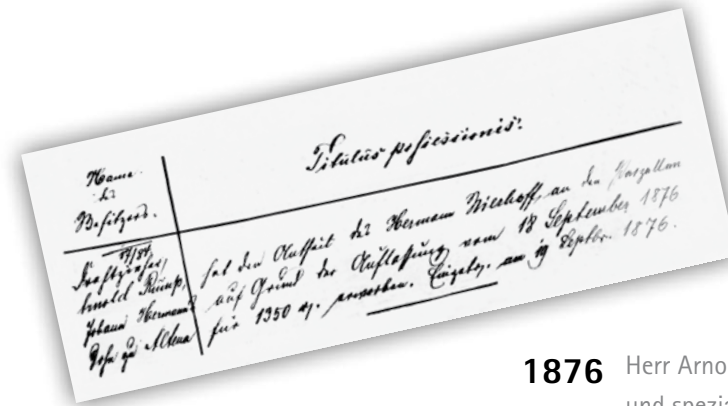 Name
des
Besitzers.
Titulus possessionis:
Drahtzieher
Arnold Rump,
Johann Hermanns
Sohn zu Altena
hat den Antheil des Hermann an den Parzellen
auf Grund der Auflassung vom 18 September 1876
für 1350 M. erworben. Eingetr. am 19 Septbr. 1876.
1876 Herr Arno
und spezia